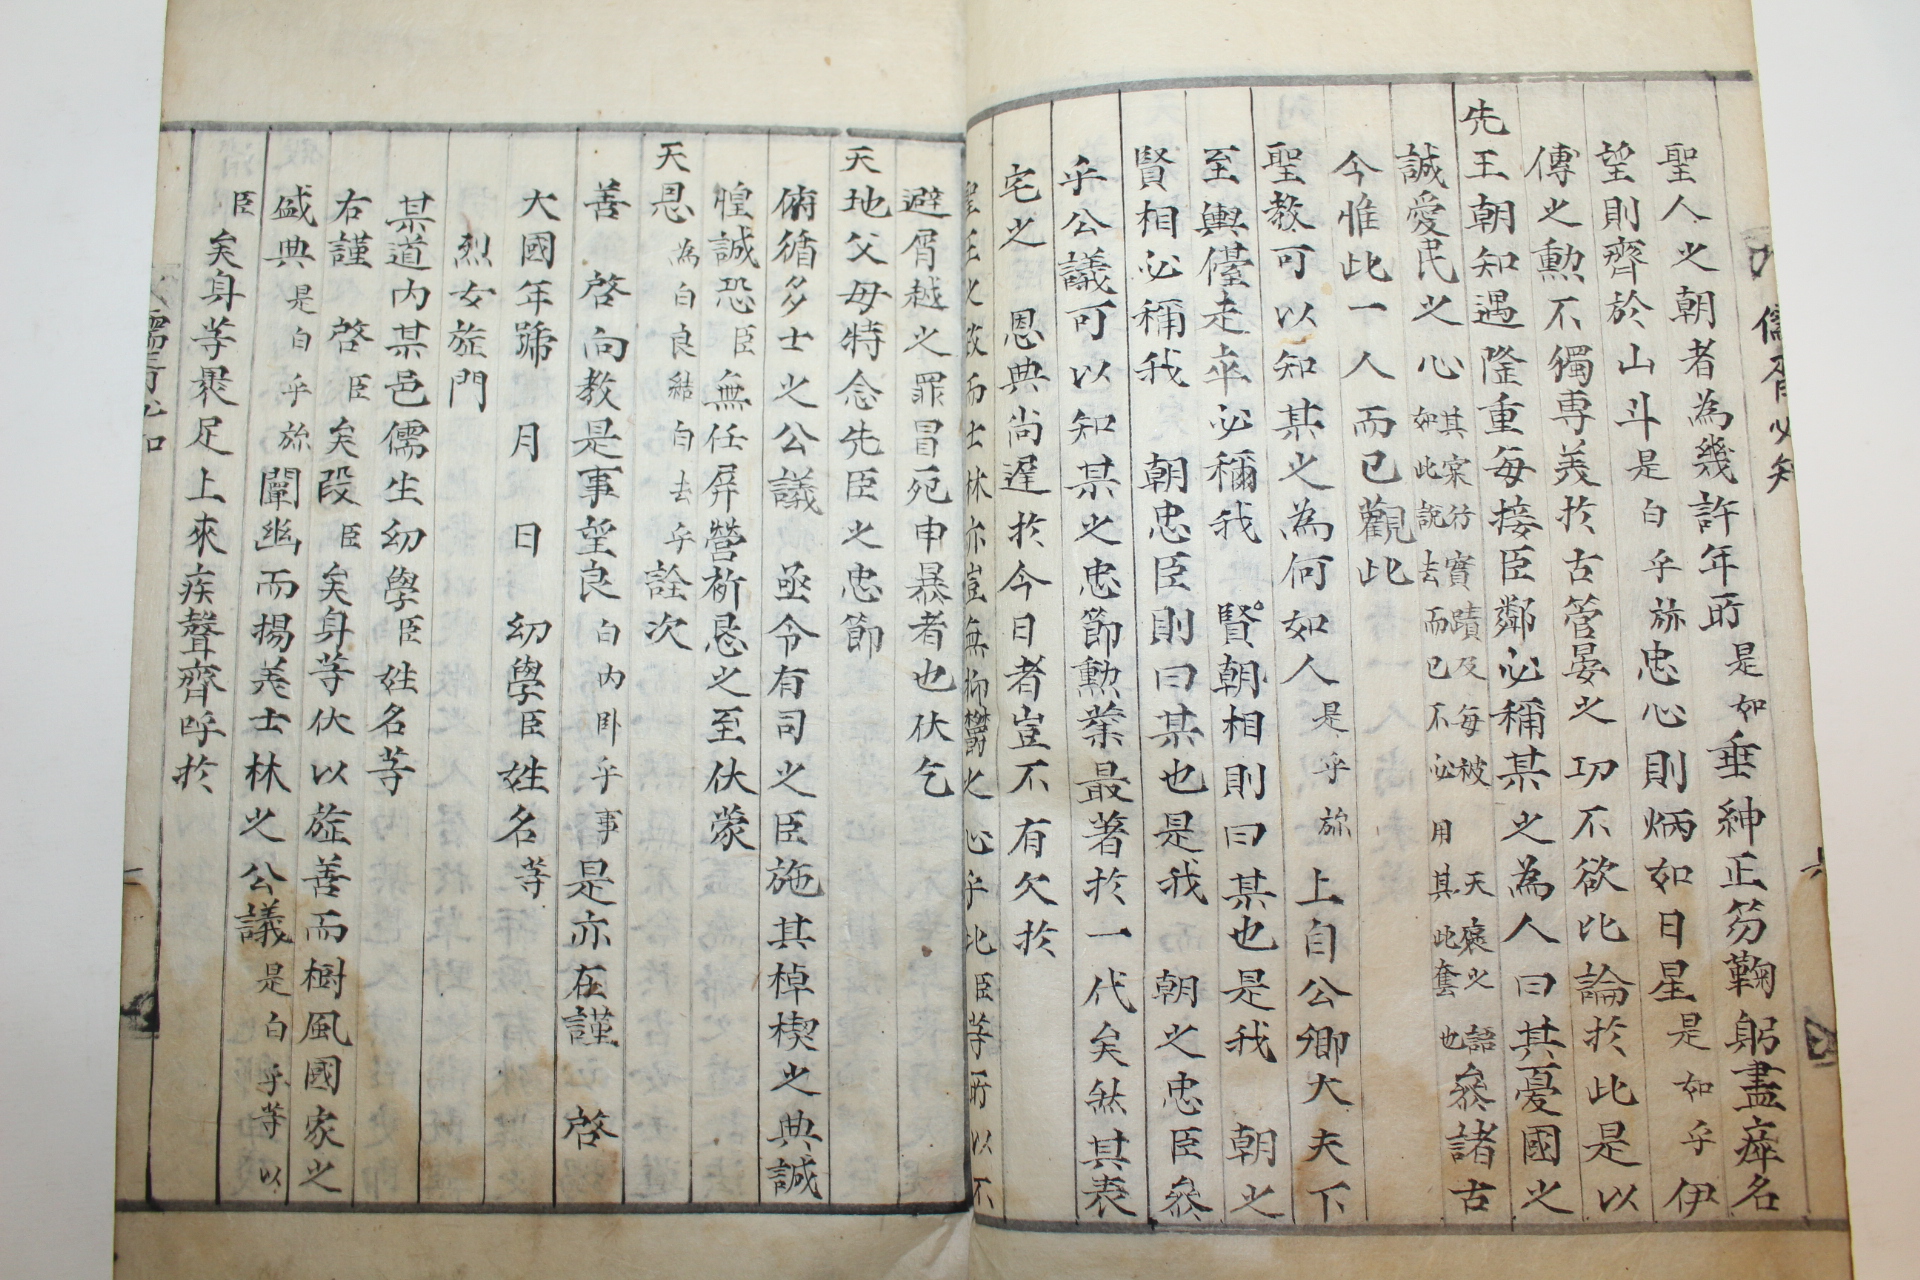 儒胥必知
六
聖人之朝者為幾許年所是如垂紳正笏鞠躬盡瘁名
望則齊於山斗是白乎旀忠心則炳如日星是如乎伊
傳之勳不獨專美於古管晏之功不欲比論於此是以
先王朝知遇隆重每接臣鄰必稱某之為人曰其憂國之
誠愛民之心其寀行實蹟及每被天褒之語
如此說去而已不必用其此套也叅諸古
今惟此一人而已觀此
聖教可以知某之為何如人是乎旀上自公卿大夫下
至輿儓走卒必稱我賢朝相則曰某也是我朝之
賢相必稱我朝忠臣則曰某也是我朝之忠臣叅
乎公議可以知某之忠節勳業最著於一代矣然其表
宅之恩典尚遲於今日者豈不有欠於
聖王之政而士林亦豈無抑欝之心乎此臣等所以不
避屑越之罪冒死申暴者也伏乞
天地父母特念先臣之忠節
俯循多士之公議亟令有司之臣施其棹楔之典誠
惶誠恐臣無任屏營祈恳之至伏蒙
天恩為白良結白去乎詮次
善啓向教是事望良白內卧乎事是亦在謹啓
大國年號月日幼學臣姓名等
烈女旌門
某道內某邑儒生幼學臣姓名等
右謹啓臣矣段臣矣身等伏以旌善而樹風國家之
盛典是白乎旀闡幽而揚美士林之公議是白乎等以
臣矣身等褁足上來疾聲齊呼於
儒胥必知